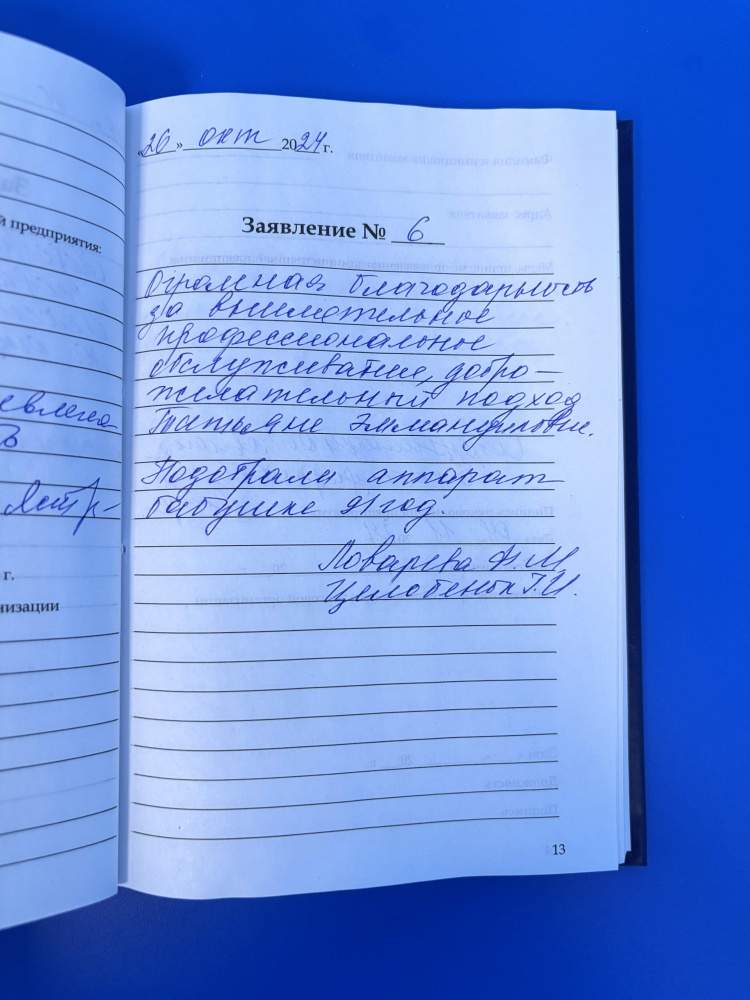 й предприятия:
Ястр-
г.
низации
«26» окт 2024 г.
Заявление № 6
Огромная благодарность
за внимательное
профессиональное
обслуживание, добро-
желательный подход
Татьяне Эммануиловне.
Подобрали аппарат
бабушке 91 год.
Ловарева Н.М
Целобенок Г.И.
13